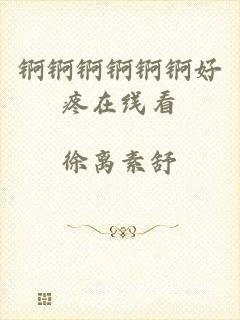 锕锕锕锕锕锕好
疼在线看
徐离素舒